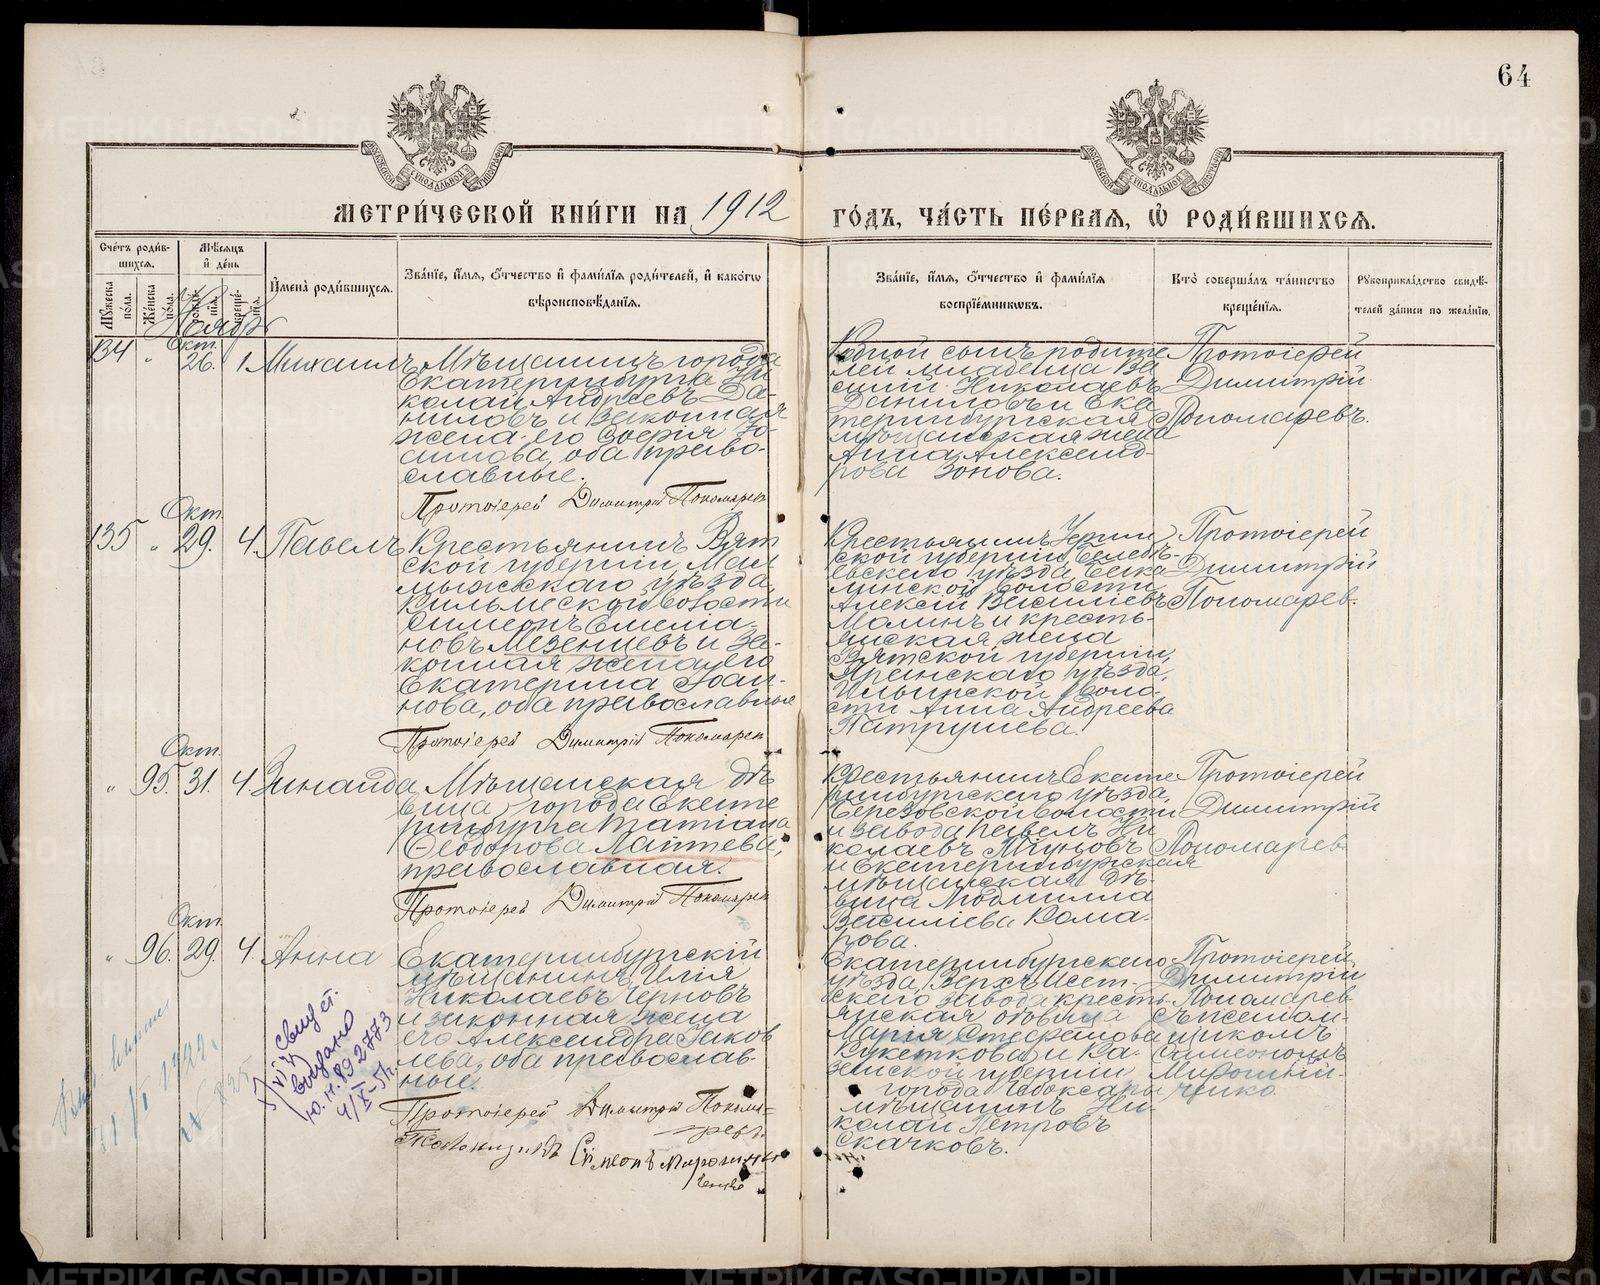 64
МОСКОВСКОЙ СУНОДАЛЬНОЙ ТИПОГРАФІИ
МОСКОВСКОЙ СУНОДАЛЬНОЙ ТИПОГРАФІИ
МЕТРИ́ЧЕСКОЙ КНИ́ГИ НА 1912
ГО́ДЪ, ЧА́СТЬ ПЕ́РВАѦ, Ѡ҆ РОДИ́ВШИХСѦ.
Сче́тъ роди́в-
шихсѧ.
Мѣ́сѧцъ
и҆ де́нь
Мꙋ́жеска
по́ла.
Же́нска
по́ла.
Ноябрь
И҆мена̀ роди́вшихсѧ.
Зва́нїе, и҆́мѧ, ѻ҆́тчество и҆ фами́лїѧ роди́телей, и҆ како́гѡ
вѣроисповѣ́данїѧ.
Зва́нїе, и҆́мѧ, ѻ҆́тчество и҆ фами́лїѧ
воспрїе́мникѡвъ.
Кто̀ соверша́лъ та́инство
креще́нїѧ.
Рꙋкоприкла́дство свидѣ́-
телей за́писи по жела́нїю.
134 " Окт. 26. 1. Михаилъ
Мѣщанинъ города
Екатеринбурга Ни
колай Андреевъ Да-
ниловъ и законная
жена его
оба право-
славные.
Протоіерей Димитрій Пономарев
Родной сынъ родите
лей младенца Ва
силій Николаевъ
Даниловъ и Ека
теринбургская
мѣщанская жена
Анна Александ-
рова Зонова.
Протоіерей
Димитрій
Пономаревъ.
135 " Окт. 29. 4. Павелъ
Крестьянинъ Вят
ской губерніи, Мал
мыжскаго уѣзда,
Кильмеской волости
Симеонъ Емелiа-
новъ Мезенцевъ и за-
конная жена его
Екатерина Іоан-
нова, оба православные
Протоіерей Димитрій Пономарев
Крестьянинъ Уфим
ской губерніи, Белебѣ-
евскаго уѣзда,
волости
Алексій Васильевъ
Малинъ и кресть-
янская жена
Вятской губерніи,
Яранскаго уѣзда,
воло-
сти Анна Андреева
Патрушева.
Протоіерей
Димитрій
Пономарев.
" 95. Окт. 31. 4. Зинаида
Мѣщанская дѣ
вица города Екате
ринбурга Татіана
Ѳеодорова Лаптева,
православная.
Протоіерей Димитрій Пономарев
Крестьянинъ Екате
ринбургскаго уѣзда,
Березовской волости
и завода Павелъ Ни
колаевъ
и Екатеринбургская
мѣщанская дѣ-
вица Людмилла
Васильева Кома-
рова.
Протоіерей
Димитрій
Пономарев
" 96. Окт. 29. 4. Анна
Екатеринбургскій
мѣщанинъ Илія
Николаевъ Черновъ
и законная жена
его Александра Іаков
лева, оба православ-
ные.
Протоіерей Димитрій Понома-
ревъ.
Псаломщикъ Симеонъ Мирошни-
ченко
Екатеринбургскаго
уѣзда, Верхъ Исет-
скаго завода кресть-
янская
Марія Стефанова
и Ка-
занской губерніи
города Чебоксары
мѣщанинъ Ни-
колай Петровъ
Скачковъ.
Протоіерей
Димитрій
Пономарев
съ псалом-
щикомъ
Симеономъ
Мирошни-
ченко.
1922.
свидет.
выдано
Ю.Н. 892773
4/X-57г.